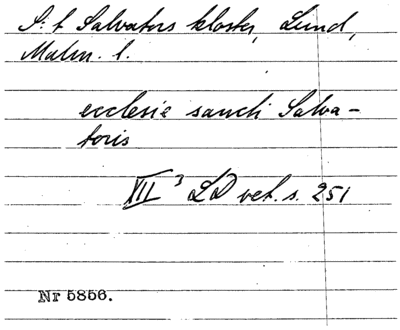 S:t Salvators kloster, Lund,
Malm. l.
ecclesie sancti Salva-
toris
XII 3 LD vet. s. 251
Nr 5856.